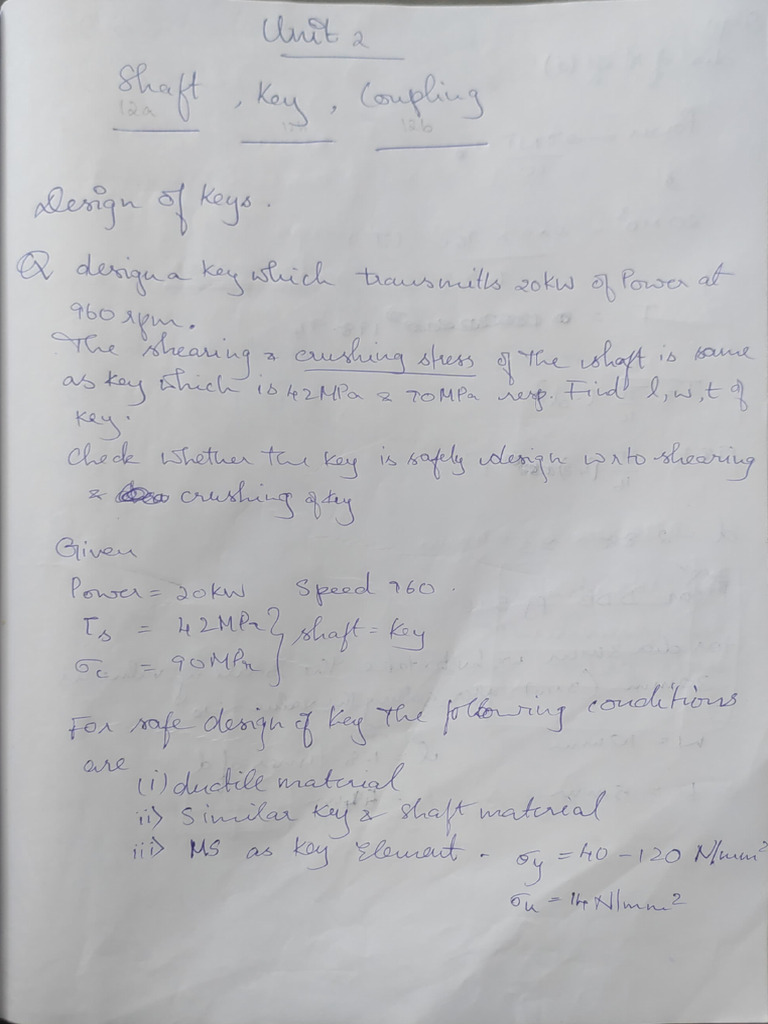 Unit 2
Shaft , Key , Coupling
12a 12b
Design of Keys.
Q design a key which transmitts 20kW of Power at
960 rpm.
The shearing & crushing stress of the shaft is same
as key which is 42MPa & 70MPa resp. Find l, w, t of
key.
Check whether the key is safely design w r to shearing
& crushing of key
Given
Power = 20kW Speed 960.
τs = 42MPa } shaft = key
σc = 90MPa
For safe design of key the following conditions
are
(i) ductile material
ii) Similar key & shaft material
iii) MS as key Element. σy = 40 - 120 N/mm²
σu = 14 N/mm²